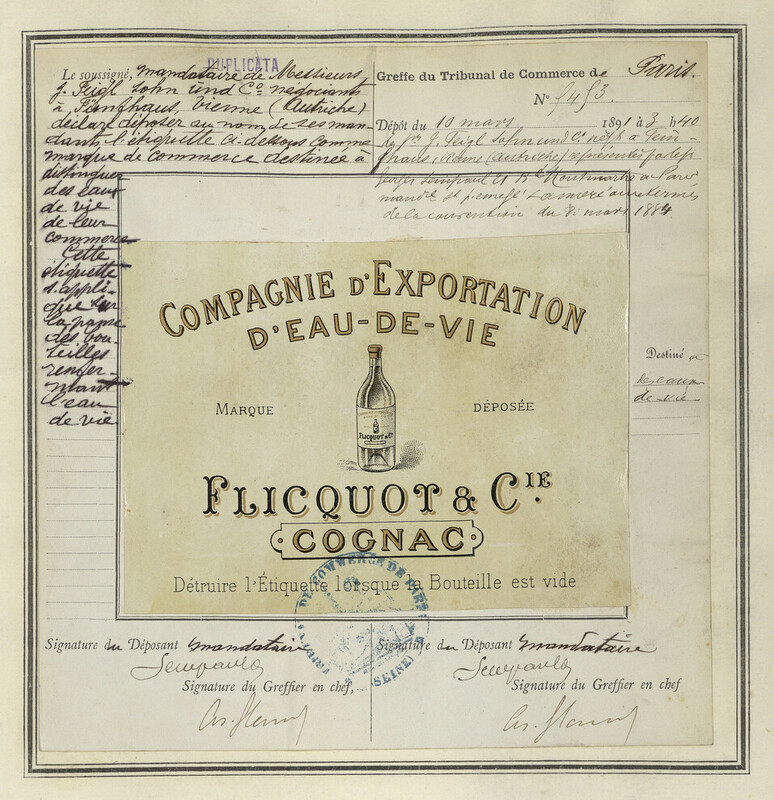 DUPLICATA
Le soussigné, mandataire de Messieurs
J. Feigl Sohn und Co négociants
à Fünfhaus, Vienne (Autriche)
déclare déposer au nom de ses man-
dants l'étiquette ci-dessous comme
marque de commerce destinée à
distinguer
des eaux
de vie
de leur
commerce
Cette
étiquette
s'appli-
que sur
la panse
des bou-
teilles
renfer-
mant
l'eau
de vie
Greffe du Tribunal de Commerce de Paris.
N°
Dépôt du 10 mars 1891 à 3 h 40
J. Feigl Sohn und C. négts à Fünf-
haus, Vienne (Autriche) représentés par
Georges
de la convention du 8 mars 1884
COMPAGNIE D'EXPORTATION
D'EAU-DE-VIE
MARQUE DÉPOSÉE
FLICQUOT & Cie
FLICQUOT & CIE.
COGNAC
Détruire l'Étiquette lorsque la Bouteille est vide
Destiné à
des eaux
de vie
DE COMMERCE DE PARIS
(SEINE)
Signature du Déposant mandataire
Signature du Greffier en chef,
Signature du Déposant mandataire
Signature du Greffier en chef